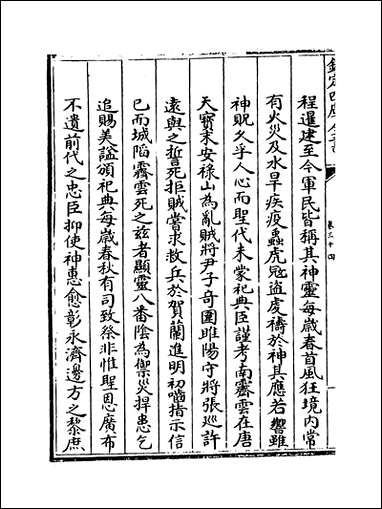 欽定四庫全書
卷三十四
程暹建至今軍民皆稱其神靈每歳春首風狂境内常
有火災及水旱疾疫蟲虎冦盜處禱於神其應若響雖
神貺久孚人心而聖代未蒙祀典臣謹考南霽雲在唐
天寳末安禄山為亂賊將尹子奇圍睢陽守將張巡許
逺與之誓死拒賊嘗求救兵於賀蘭進明初齧指示信
已而城陷霽雲死之兹者顯靈八番陰為禦災捍患乞
追賜美謚頒祀典每歳春秋有司致祭非惟聖恩廣布
不遺前代之忠臣抑使神惠愈彰永濟邊方之黎庶